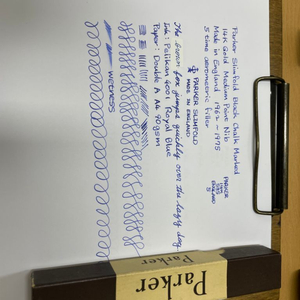 Parker Slimfold Black Chalk Marked
14K Gold Medium Point Nib
Made in England 1962 - 1975
5 time aerometric filler
PARKER SLIMFOLD
MADE IN ENGLAND
PARKER
ENGLAND
The brown fox jumps quickly over the lazy dog
Ink: Pelikan 4001 Royal Blue
Paper: Double A A4 80gsm
WETNESS
Parker
Parker